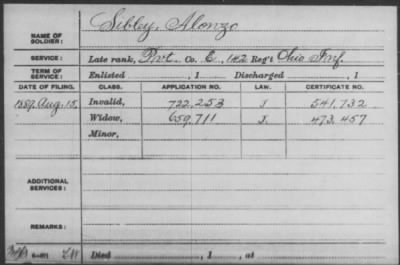 Sibley, Alonzo
NAME OF SOLDIER:
SERVICE: Late rank, Pvt. Co. E, 142 Reg't Ohio Inf.
TERM OF SERVICE: Enlisted , 1 Discharged , 1
DATE OF FILING. CLASS. APPLICATION NO. LAW. CERTIFICATE NO.
1889, Aug. 15, Invalid, 722,253 J 541,732
Widow, 659,711 J. 473,457
Minor,
ADDITIONAL SERVICES:
REMARKS:
Died , 1 , at